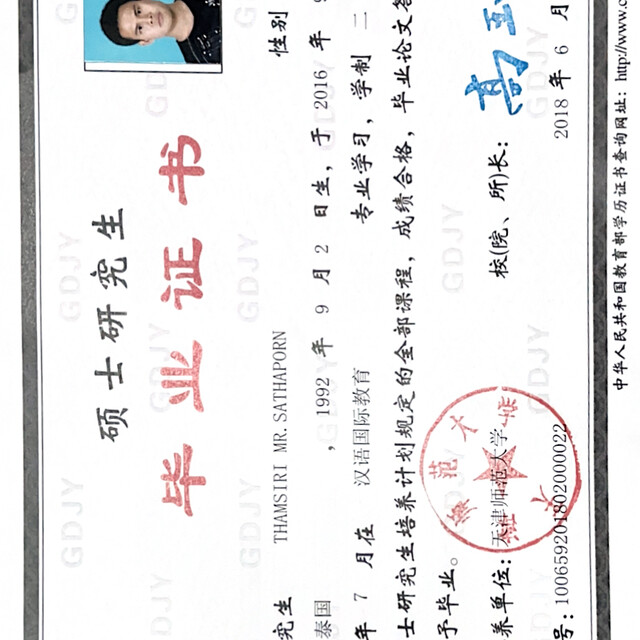 硕士研究生
毕业证书
究生 THAMSIRI MR.SATHAPORN 性别
泰国 ,1992 年 9 月 2 日生，于 2016 年 9
年 7 月在 汉语国际教育 专业学习，学制 二
士研究生培养计划规定的全部课程，成绩合格，毕业论文答
予毕业。
养单位：天津师范大学 校(院、所)长：
号：100659201802000022 2018 年 6 月
中华人民共和国教育部学历证书查询网址：http://www.c
GDJY